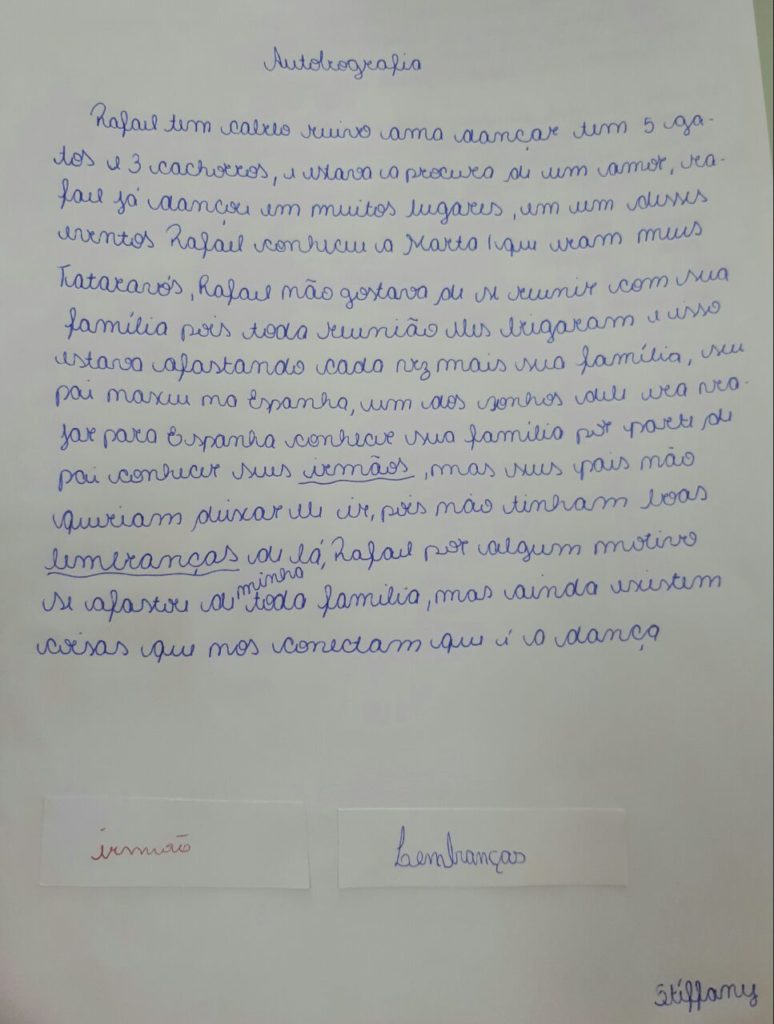 Autobiografia
Rafael tem cabelo ruivo ama dançar tem 5 ga-
tos e 3 cachorros, e estava a procura de um amor, ra-
fael já dançou em muitos lugares, em um desses
eventos Rafael conheceu a Marta, que eram meus
Tataravós, Rafael não gostava de se reunir com sua
família pois toda reunião eles brigavam e isso
estava afastando cada vez mais sua família, seu
pai nasceu na Espanha, um dos sonhos dele era via-
jar para Espanha conhecer sua família por parte de
pai conhecer seus irmãos, mas seus pais não
queriam deixar ele ir, pois não tinham boas
lembranças de lá, Rafael por algum motivo
se afastou de minha toda família, mas ainda existem
coisas que nos conectam que é a dança
irmão
Lembranças
Stiffany